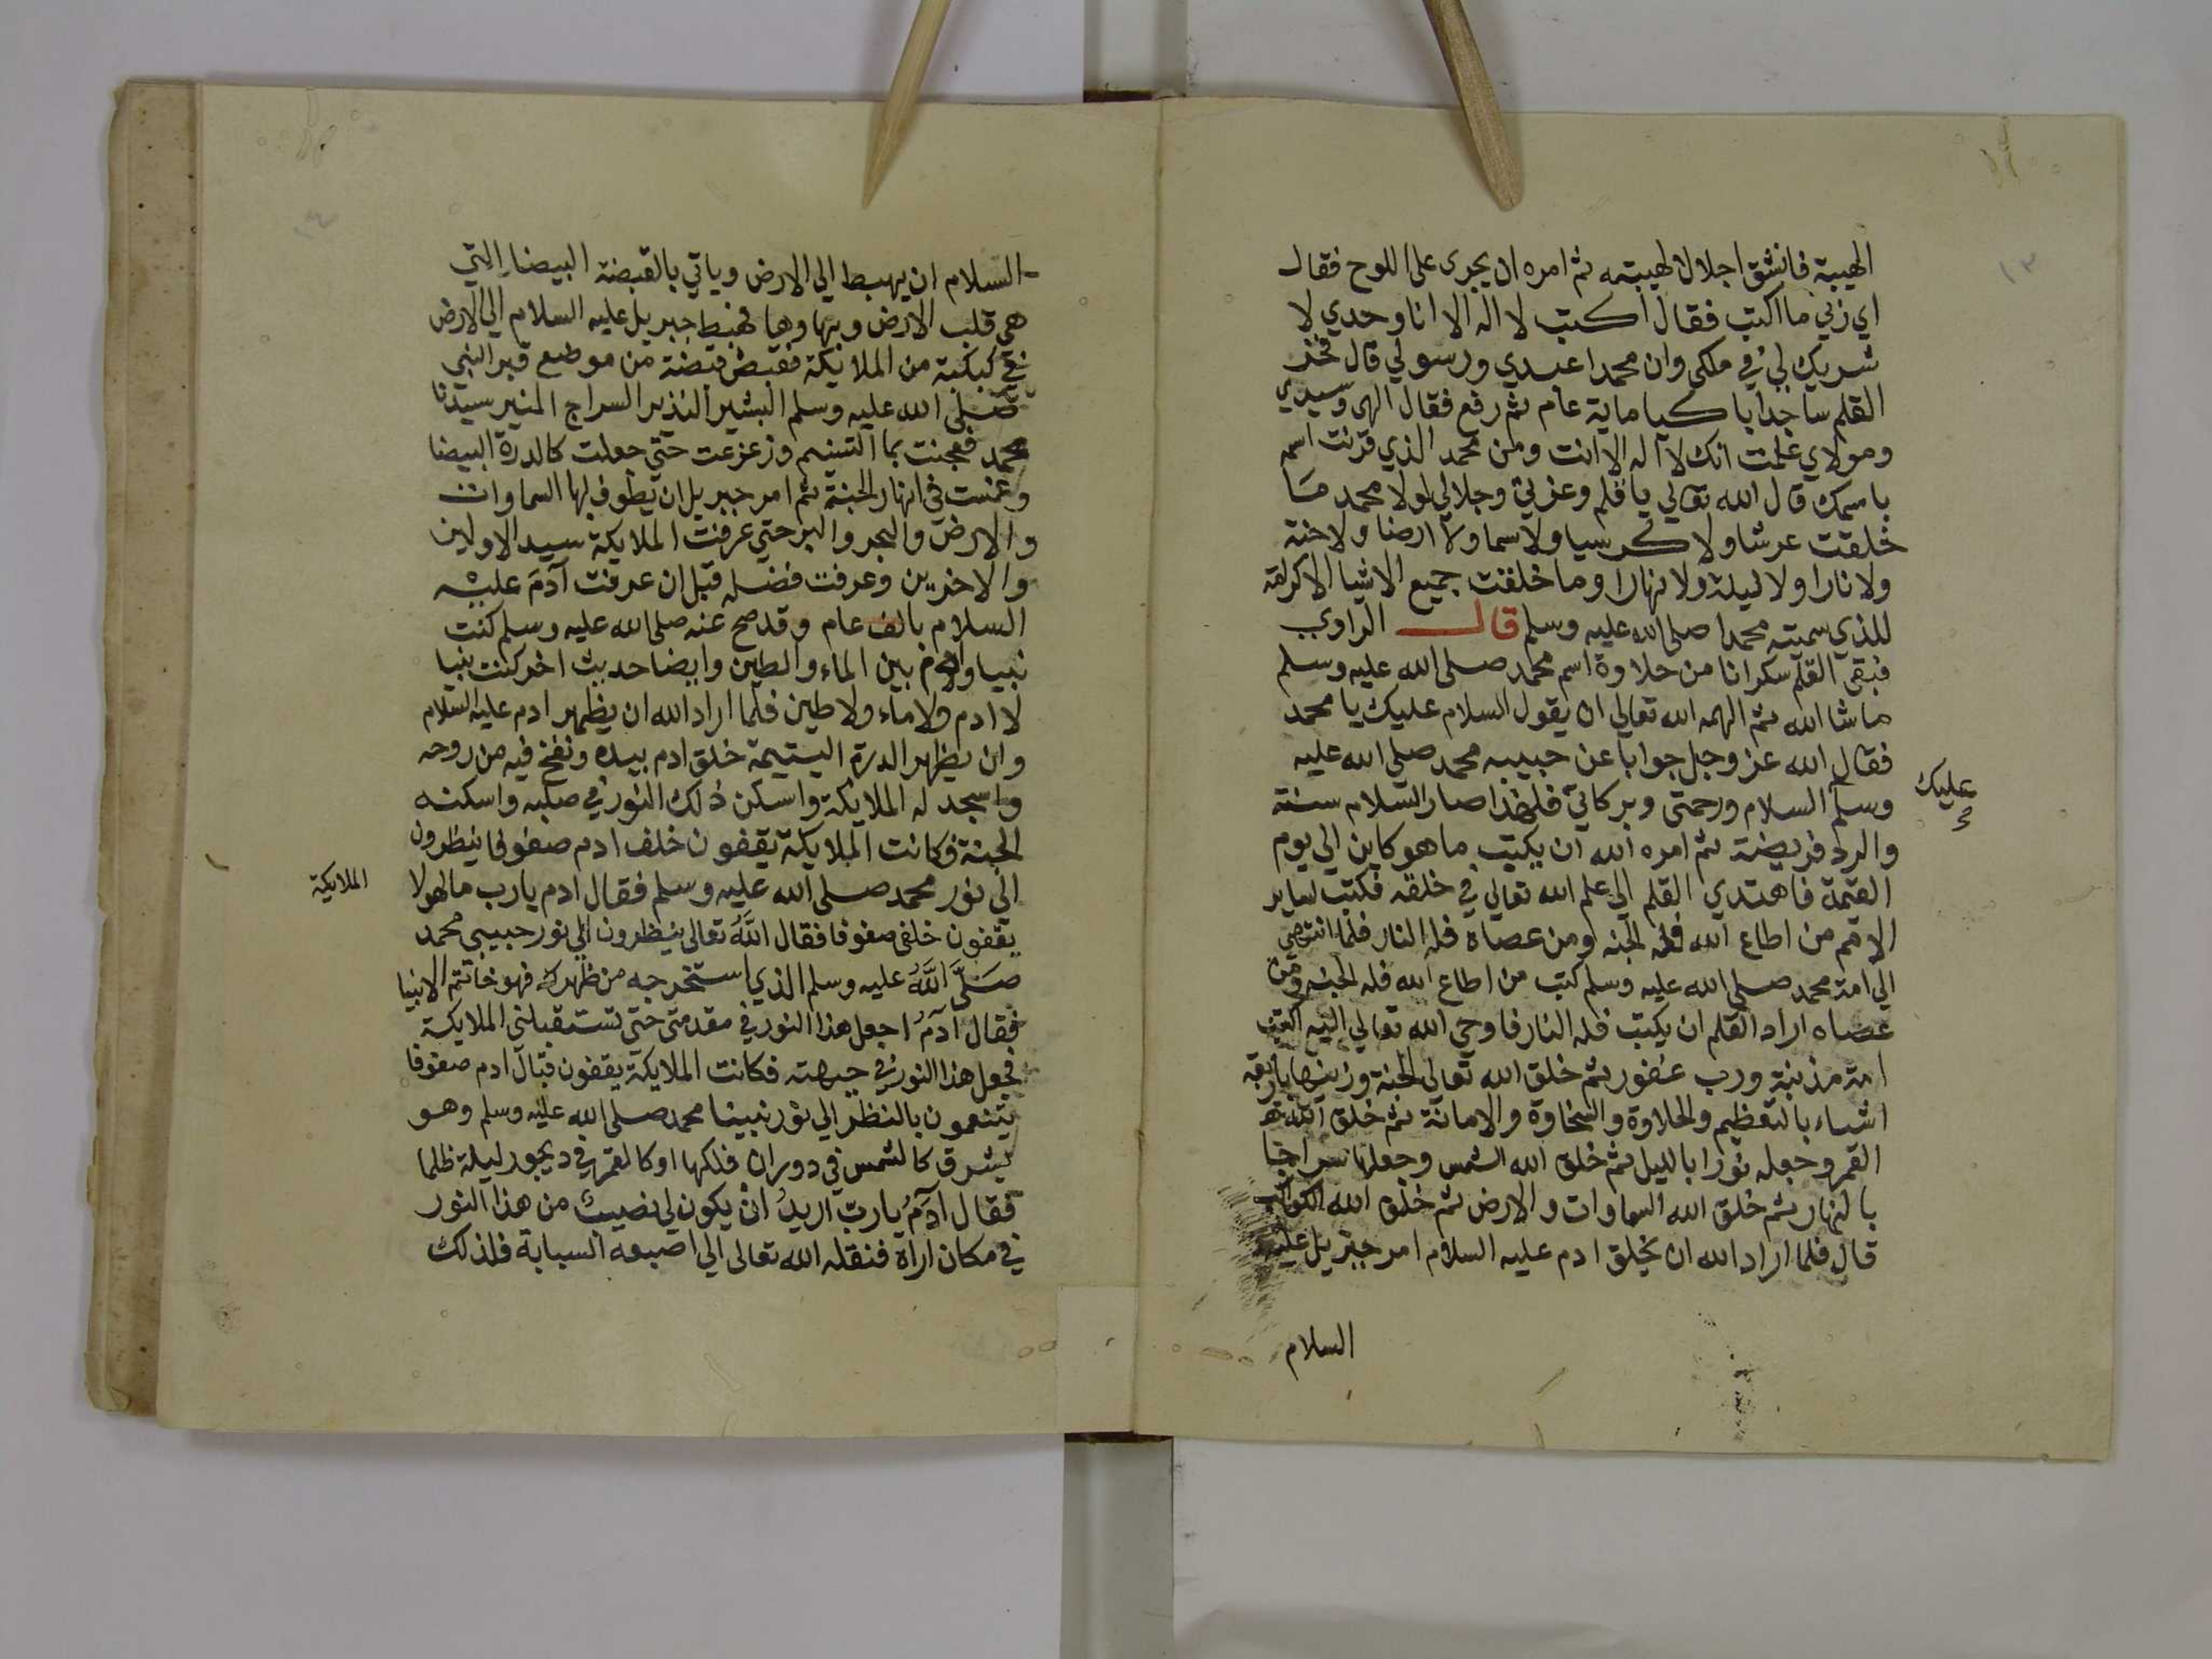 ١٣
الهيبة فانشق اجلالا لهيبته ثم امره ان يجرى على اللوح فقال
اي ربي ما اكتب فقال اكتب لا اله الا انا وحدي لا
شريك لي في ملكي وان محمدا عبدي ورسولي قال فخر
القلم ساجدا باكيا ماية عام ثم رفع فقال الهى وسيدي
ومولاي علمت انك لا اله الا انت ومن محمد الذي قرنت اسمه
باسمك قال الله تعالي يا قلم وعزتي وجلالي لولا محمد مَا
خلقت عرشا ولا كرسيا ولا سما ولا ارضا ولا جنة
ولا نارا ولا ليلة ولا نهارا وما خلقت جميع الاشيا الا كرامة
للذي سميته محمدا صلى الله عليه وسلم قال الراوي
فبقى القلم سكرانا من حلاوة اسم محمد صلى الله عليه وسلم
ما شا الله ثم الهمه الله تعالي ان يقول السلام عليك يا محمد
فقال الله عز وجل جوابا عن حبيبه محمد صلى الله عليه
عليك
وسلم السلام ورحمتى وبركاتي فلهذا صار السلام سنة
والرد فريضة ثم امره الله ان يكتب ما هو كاين الي يوم
القيمة فاهتدي القلم الي علم الله تعالي في خلقه فكتب لساير
الامم من اطاع الله فله الجنه ومن عصاه فله النار فلما انتهى
الي امة محمد صلى الله عليه وسلم كتب من اطاع الله فله الجنه ومن
عصاه اراد القلم ان يكتب فله النار فاوحي الله تعالي اليه اكتب
امة مذنبة ورب غفور ثم خلق الله تعالي الجنة وزينها باربعة
اشياء بالتعظيم والحلاوة والسخاوة والامانة ثم خلق الله
القمر وجعله نورا بالليل ثم خلق الله الشمس وجعلها سراجا
بالنهار ثم خلق الله السماوات والارض ثم خلق الله الكواكب
قال فلما اراد الله ان يخلق ادم عليه السلام امر جبريل عليه
السلام
السلام ان يهبط الي الارض وياتي بالقبضة البيضا التي
هي قلب الارض وبهاوها فهبط جبريل عليه السلام الي الارض
في كبكبة من الملايكة فقبض قبضة من موضع قبر النبي
صلى الله عليه وسلم البشير النذير السراج المنير سيدنا
محمد فعجنت بما التسنيم وزعزعت حتي جعلت كالدرة البيضا
وغمست في انهار الجنة ثم امر جبريل ان يطوف بها السماوات
والارض والبحر والبر حتي عرفت الملايكة سيد الاولين
والاخرين وعرفت فضله قبل ان عرفت آدمَ عليه
السلام بالف عام وقد صح عنه صلى الله عليه وسلم كنت
نبيا وادم بين الماء والطين وايضا حديث اخر كنت نبيا
لا ادم ولا ماء ولا طين فلما اراد الله ان يظهر ادم عليه السلام
وان يظهر الدرة اليتيمة خلق ادم بيده ونفخ فيه من روحه
واسجد له الملايكة واسكن ذلك النور في صلبه واسكنه
الجنة فكانت الملايكة يقفون خلف ادم صفوفا ينظرون
الي نور محمد صلى الله عليه وسلم فقال ادم يا رب ما لهولا
الملايكة
يقفون خلفي صفوفا فقال اللَّهُ تعالى ينظرون الي نور حبيبي محمد
صَلَّى اللَّهُ عليه وسلم الذي استخرجه من ظهرك فهو خاتم الانبيا
فقال آدمُ اجعل هذا النور في مقدمتى حتي تستقبلني الملايكة
فجعل هذا النور في جبهته فكانت الملايكة يقفون قبال ادم صفوفا
يتنعمون بالنظر الي نور نبينا محمد صلى الله عليه وسلم وهو
يشرق كالشمس في دوران فلكها او كالقمر في ديجور ليلة ظلما
فقال آدمُ يارب اريدُ ان يكون لي نصيبٌ من هذا النور
في مكان اراه فنقله الله تعالى الي اصبعه السبابة فلذلك